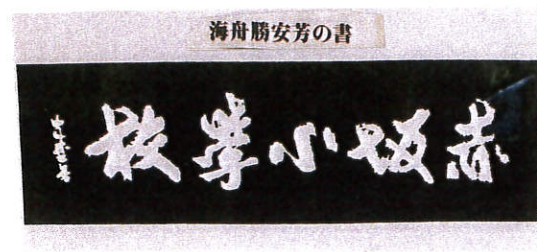 海舟勝安芳の書
赤坂小學校